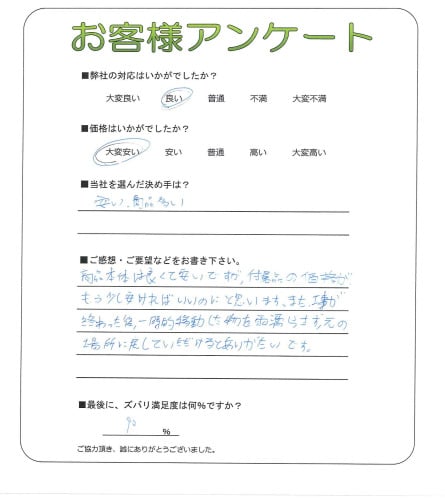 お客様アンケート
■弊社の対応はいかがでしたか？
大変良い 良い 普通 不満 大変不満
■価格はいかがでしたか？
大変安い 安い 普通 高い 大変高い
■当社を選んだ決め手は？
安い、商品多い
■ご感想・ご要望などをお書き下さい。
商品本体は良くて安いですが、付属品の価格が
もう少し安ければいいのにと思います。また、工事が
終わった後、一時的移動した物を雨濡らさず、元の
場所に戻していただけるとありがたいです。
■最後に、ズバリ満足度は何%ですか？
90 %
ご協力頂き、誠にありがとうございました。